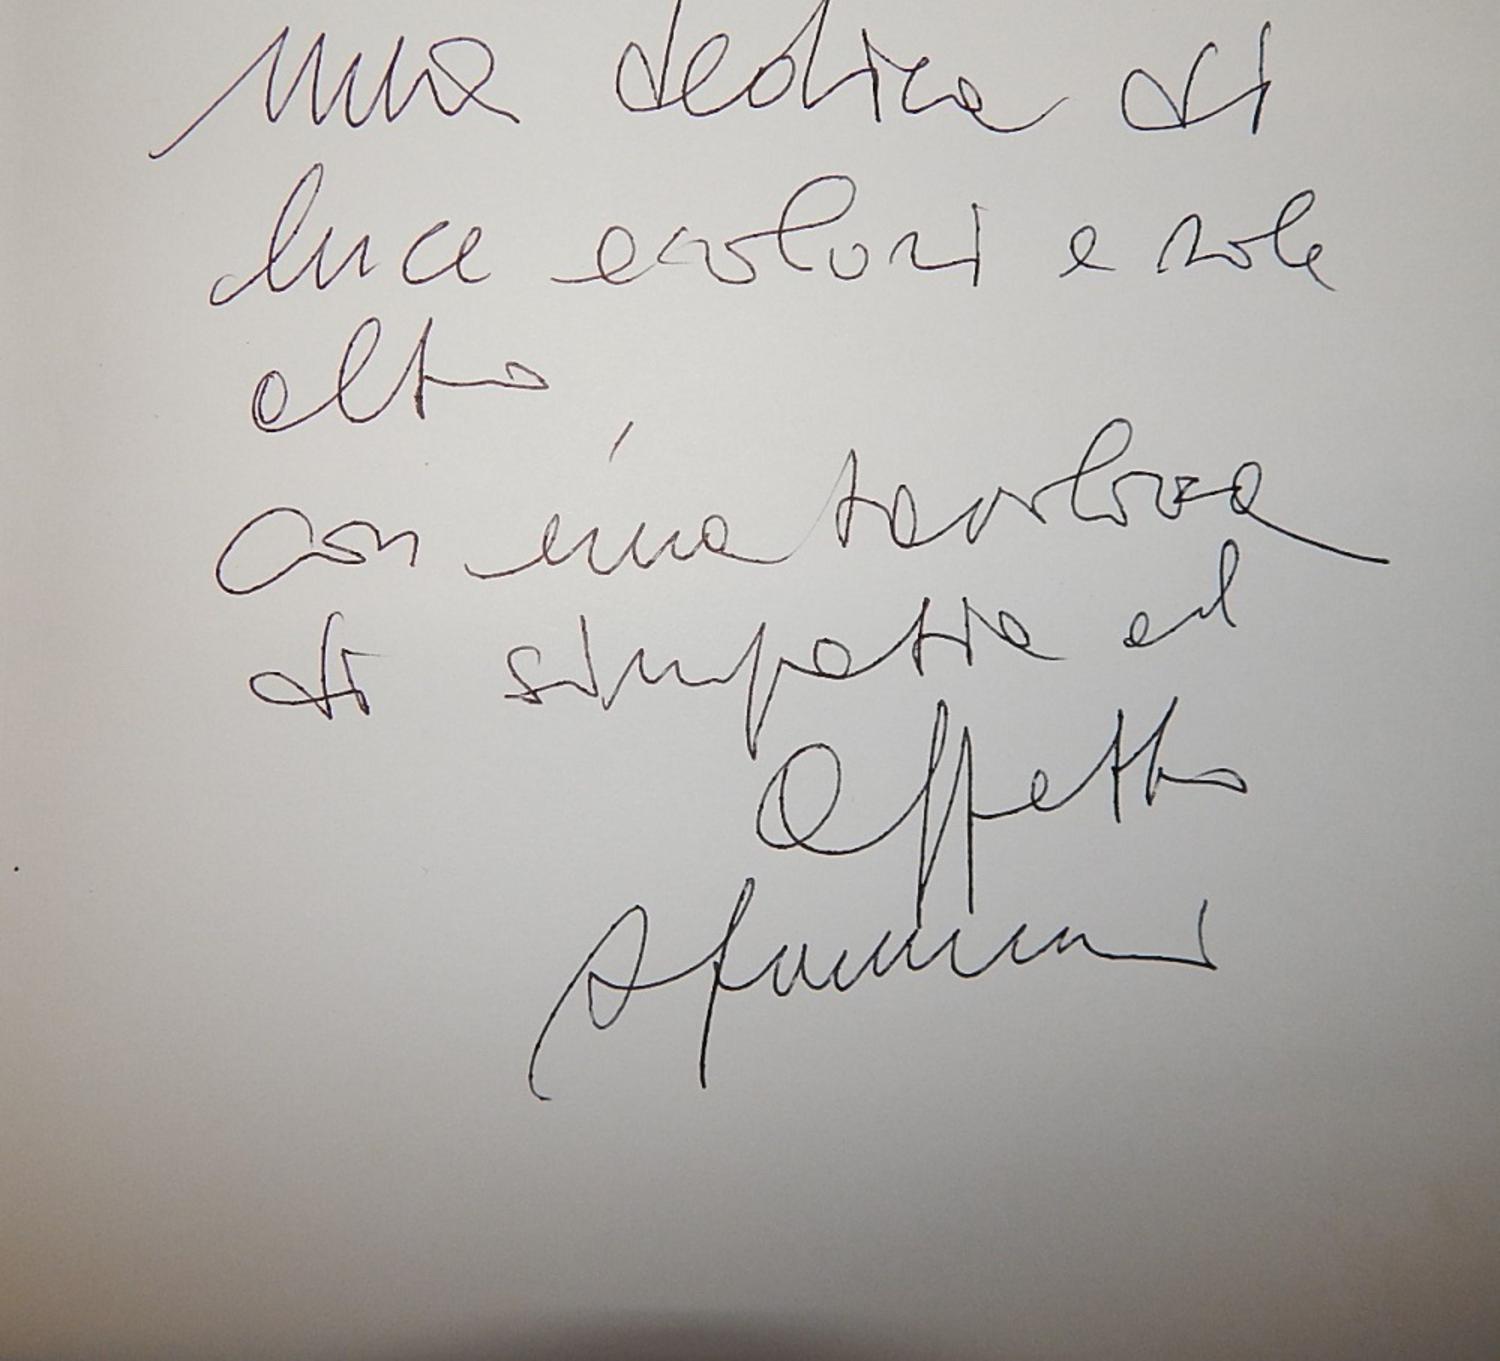 una dedica di
luce e colori e sole
alto
con una tavolozza
di simpatia ed
affetto